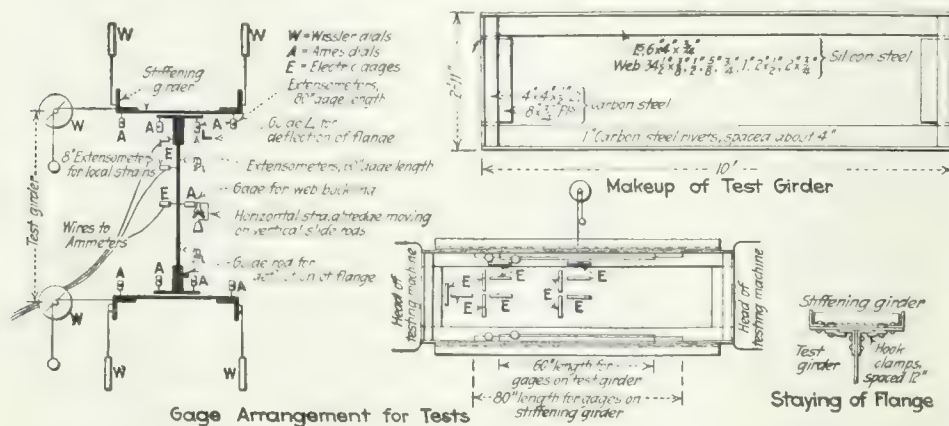 W W
W = Wissler dials
A = Ames dials
E = Electric gages
Stiffening
girder
Extensometers,
80" gage length
A A A
Guide L for
deflection of flange
8" Extensometers
for local strains
E
Extensometers, gage length
W
Gage for web buckling
E A
Horizontal straightedge moving
on vertical slide rods
Test girder
Wires to
Ammeters
Guide rod for
deflection of flange
A A A A
W
W W
Gage Arrangement for Tests
2'-11"
6"x4"x3/4"
Web 34
Silicon steel
carbon steel
1" Carbon steel rivets, spaced about 4"
10'
Makeup of Test Girder
Head of
testing machine
E E
E E
E E
Head of
testing machine
60" length for
gages on test girder
80" length for gages on
stiffening girder
Stiffening girder
Test
girder
Hook
clamps,
spaced 12"
Staying of Flange